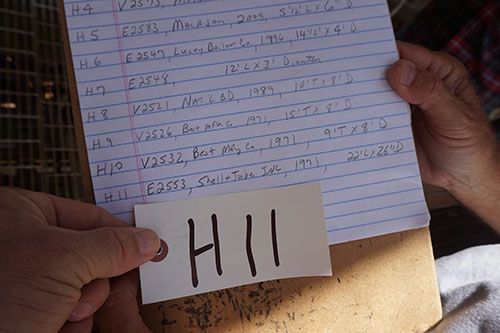 H4 V2573,
H5 E2583, MacAdon, 2009, 5'1/2" L x 6" D
H6 E2547, Lucey Boiler Co, 1996, 14'L x 4' D
H7 E2548, 12'L x 3' Diameter
H8 V2521, Nat'l BD, 1989, 10'T x 8' D
H9 V2526, Best MFG Co, 1971, 15'T x 8' D
H10 V2532, Best Mfg Co, 1971, 9'T x 8' D
H11 E2553, Shell & Tube INC, 1971, 22'L x 26" D
H11